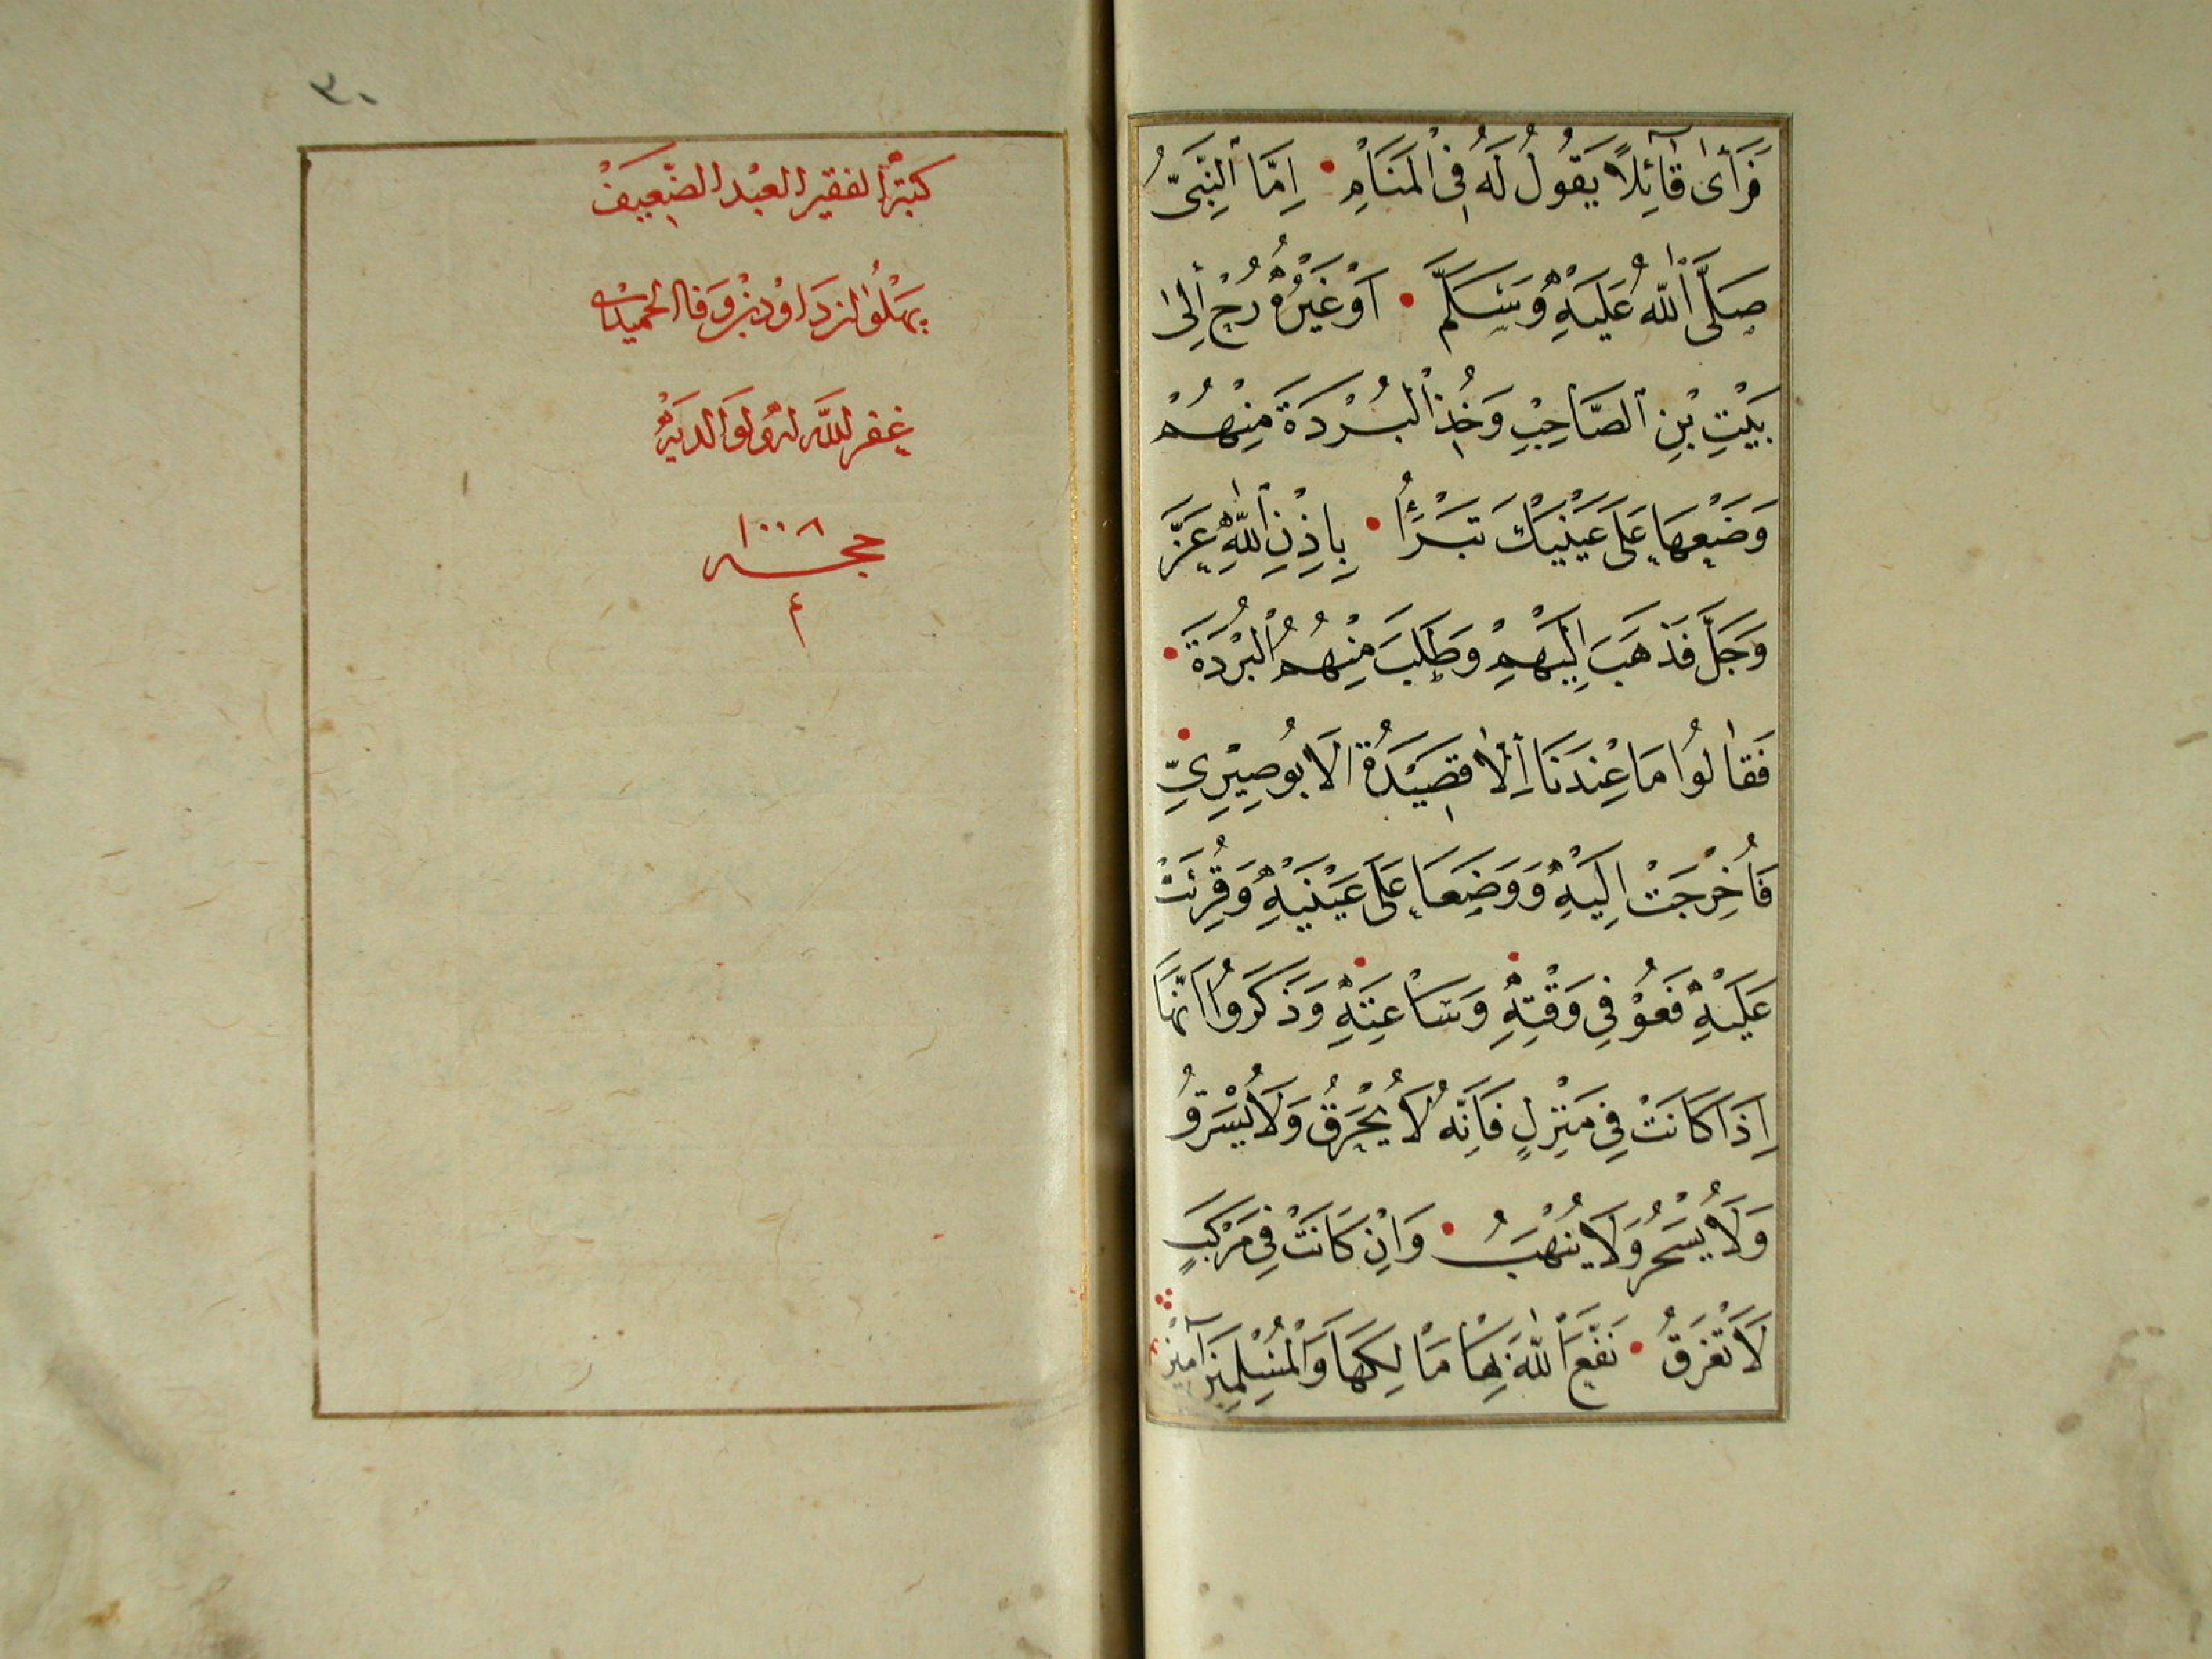 فَرَأٰى قَآئِلًا يَقُولُ لَهُ فِى الْمَنَامِ اِمَّا النَّبِىُّ
صَلَّى اللّٰهُ عَلَيْهِ وَسَلَّمَ اَوْ غَيْرُهُ رُحْ اِلٰى
بَيْتِ بْنِ الصَّاحِبِ وَخُذِ الْبُرْدَةَ مِنْهُمْ
وَضَعْهَا عَلَى عَيْنَيْكَ تَبْرَأُ بِاِذْنِ اللّٰهِ عَزَّ
وَجَلَّ فَذَهَبَ اِلَيْهِمْ وَطَلَبَ مِنْهُمُ الْبُرْدَةَ
فَقَالُوا مَا عِنْدَنَا اِلَّا قَصِيْدَةُ الْاَبُوصِيْرِىِّ
فَاُخْرِجَتْ اِلَيْهِ وَوَضَعَا عَلَى عَيْنَيْهِ وَقُرِئَتْ
عَلَيْهِ فَعُوْ فِى وَقْتِهِ وَسَاعَتِهِ وَذَكَرُوا اَنَّهَا
اِذَا كَانَتْ فِى مَنْزِلٍ فَاِنَّهُ لَا يُحْرَقُ وَلَا يُسْرَقُ
وَلَا يُسْحَرُ وَلَا يُنْهَبُ وَاِنْ كَانَتْ فِى مَرْكَبٍ
لَا تَغْرَقُ نَفَعَ اللّٰهُ بِهَا مَالِكَهَا وَالْمُسْلِمِيْنَ آمِيْنْ
٣٠
كتبه الفقير العبد الضعيف
بهلول بن داود بن وفا
غفر الله له ولوالديه
١٠٠٨
م